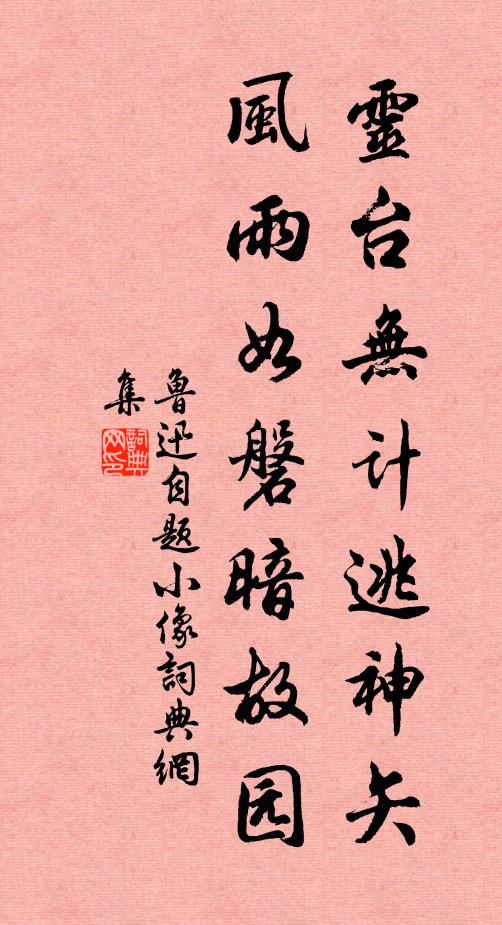 靈台無計逃神矢
風雨如磐暗故园
鲁迅自题小像詞典網
集
詞典
网印